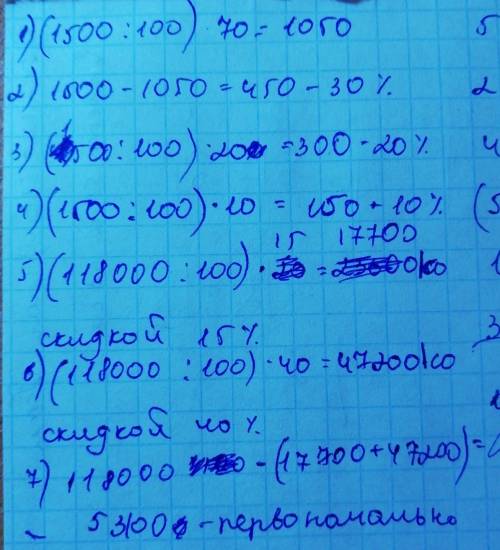 1) (1500 : 100) · 70 = 1050
2) 1500 - 1050 = 450 - 30 %
3) (1500 : 100) · 20 = 300 - 20 %
4) (1500 : 100) · 10 = 150 - 10 %
5) (118000 : 100) · 15 = 17700 /со
скидкой 15 %.
6) (118000 : 100) · 40 = 47200 /со
скидкой 40 %.
7) 118000 - (17700 + 47200) =
- 53100 - первономально
5
2
4
(5
1
3